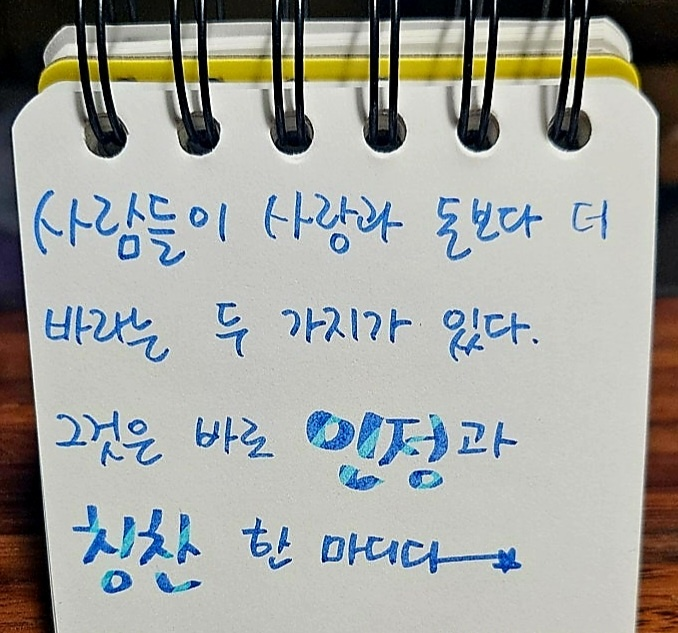 사람들이 사랑과 돈보다 더
바라는 두 가지가 있다.
그것은 바로 인정과
칭찬 한 마디다